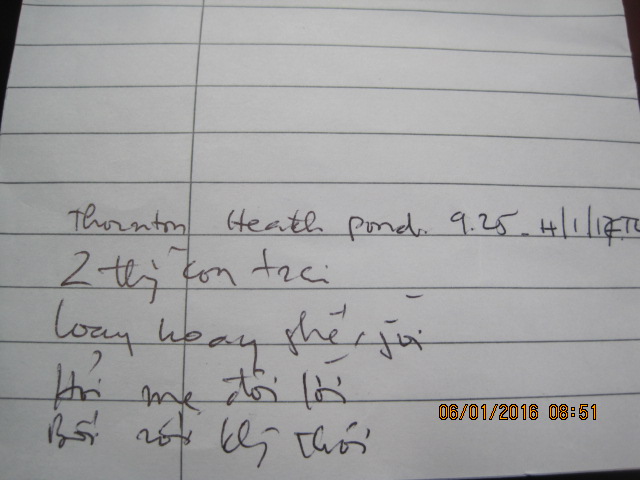 Thornton Heath pond. 9.25 - 4/1/17
2 thị con trai
loay hoay ghế,
Hỏi mẹ đôi lời
Bối rối khỉ thôi
06/01/2016 08:51